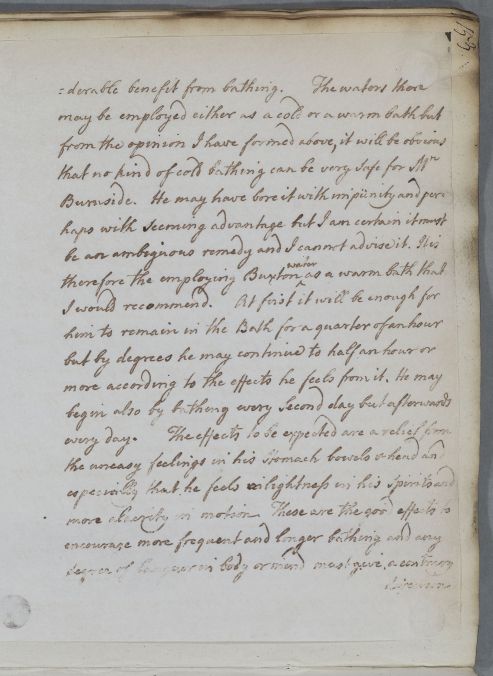 153
=derable benefit from bathing. The waters there
may be employed either as a cold or a warm bath but
from the opinion I have formed above, it will be obvious
that no kind of cold bathing can be very safe for Mr
Burnside. He may have bore it with impunity and per
haps with seeming advantage but I am certain it must
be an ambiguous remedy and I cannot advise it. It is
therefore the employing Buxton water as a warm bath that
I would recommend. At first it will be enough for
him to remain in the Bath for a quarter of an hour
but by degrees he may continue to half an hour or
more according to the effects he feels from it. He may
begin also by bathing every second day but afterwards
every day. The effects to be expected are a relief from
the uneasy feelings in his stomach bowels & head and
especially that he feels lightness in his spirits and
more alacrity in motion. These are the good effects to
encourage more frequent and longer bathing and any
degree of languor in body or mind must give a contrary
direction